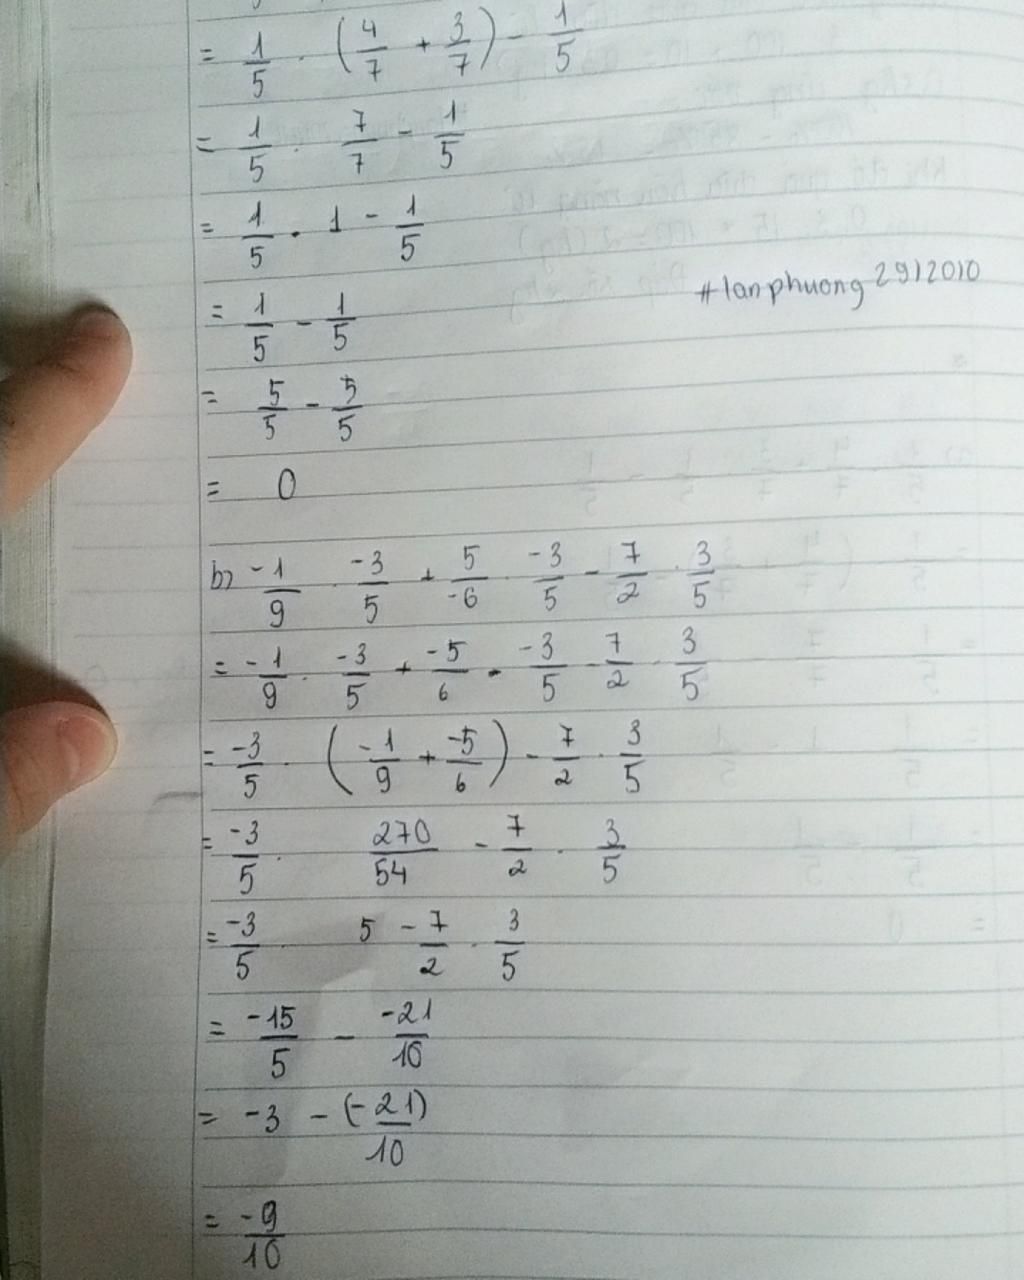 = 1/5 . (4/7 + 3/7) - 1/5
= 1/5 . 7/7 - 1/5
= 1/5 . 1 - 1/5
= 1/5 - 1/5
#lanphuong 29)2010
= 5/5 - 5/5
= 0
b) -1/9 . -3/5 + 5/-6 . -3/5 - 7/2 . 3/5
= -1/9 . -3/5 + -5/6 . -3/5 - 7/2 . 3/5
= -3/5 . (-1/9 + -5/6) - 7/2 . 3/5
= -3/5 . 270/54 - 7/2 . 3/5
= -3/5 . 5 - 7/2 . 3/5
= -15/5 - -21/10
= -3 - (-21)/10
= -9/10